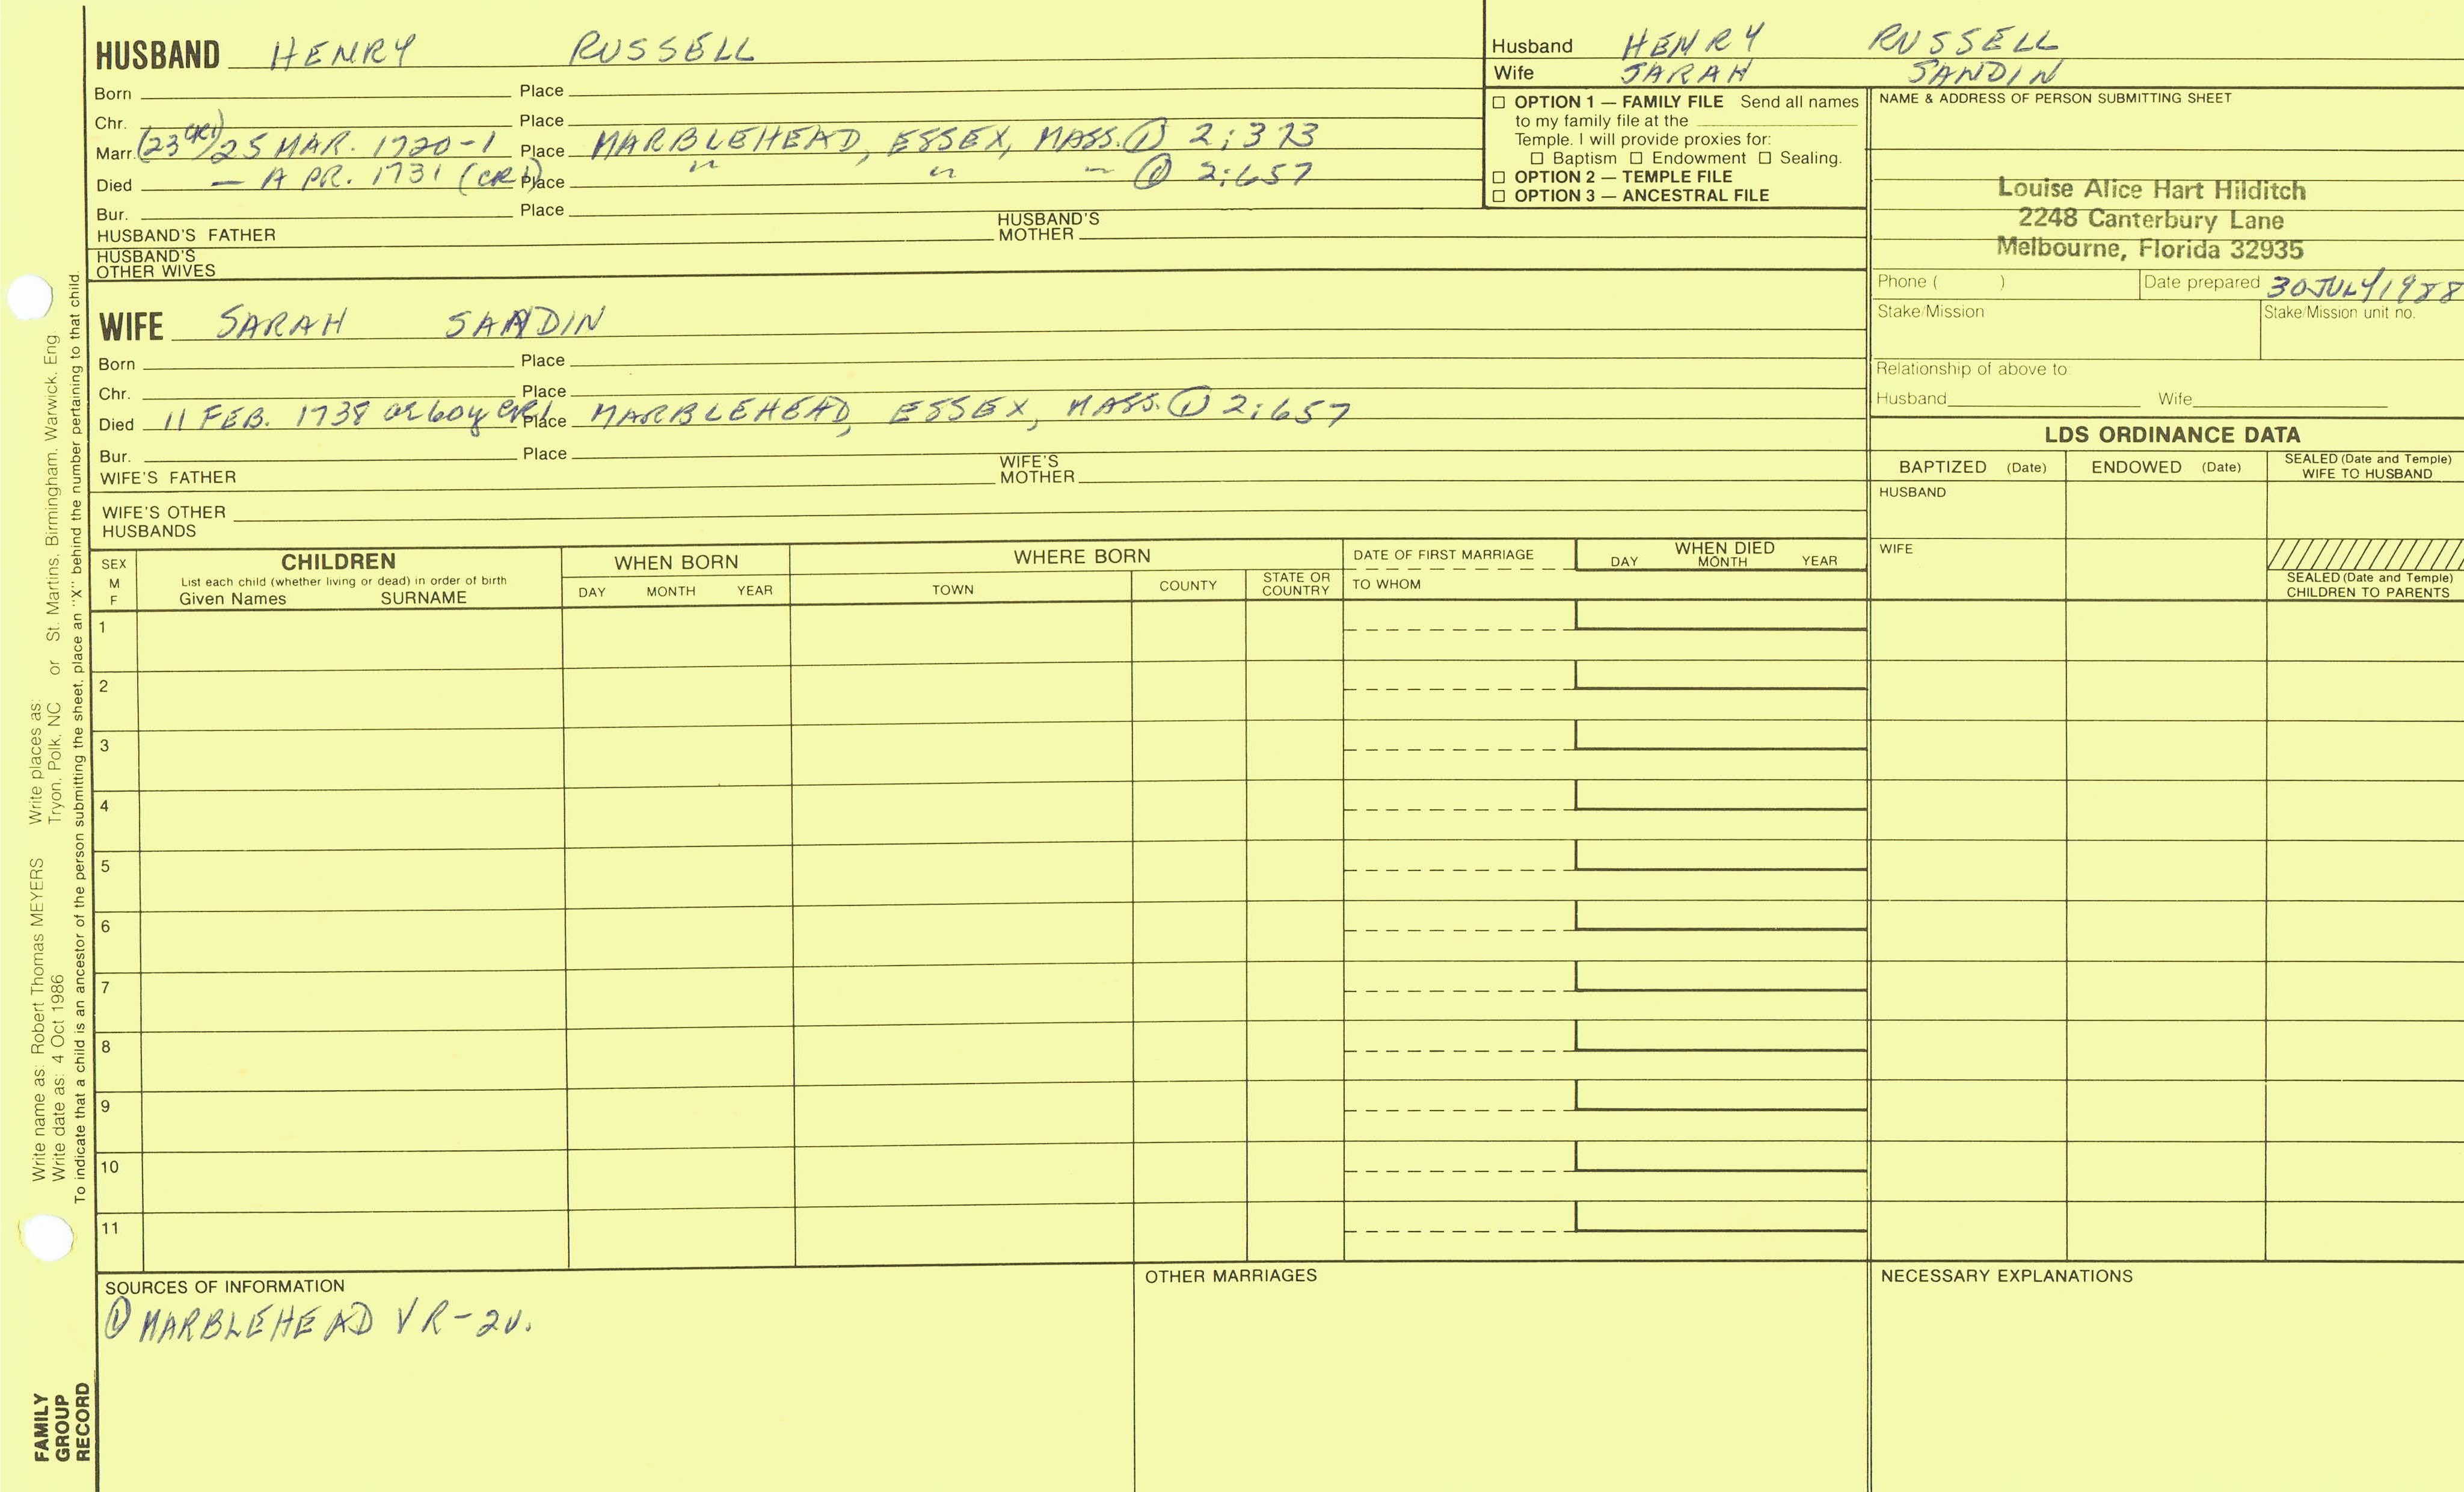 HUSBAND HENRY RUSSELL
Born Place
Chr. Place
Marr. (23 CR1) 25 MAR. 1720-1 Place MARBLEHEAD, ESSEX, MASS. ① 2:373
Died — APR. 1731 (CR1) Place " " " ① 2:657
Bur. Place
HUSBAND'S FATHER HUSBAND'S MOTHER
HUSBAND'S
OTHER WIVES
WIFE SARAH SANDIN
Born Place
Chr. Place
Died 11 FEB. 1738 ae 60y CR1 Place MARBLEHEAD, ESSEX, MASS. ① 2:657
Bur. Place
WIFE'S FATHER WIFE'S MOTHER
WIFE'S OTHER
HUSBANDS
Husband HENRY RUSSELL
Wife SARAH SANDIN
☐ OPTION 1 — FAMILY FILE Send all names
to my family file at the
Temple. I will provide proxies for:
☐ Baptism ☐ Endowment ☐ Sealing.
☐ OPTION 2 — TEMPLE FILE
☐ OPTION 3 — ANCESTRAL FILE
NAME & ADDRESS OF PERSON SUBMITTING SHEET
Louise Alice Hart Hilditch
2248 Canterbury Lane
Melbourne, Florida 32935
Phone ( ) Date prepared 30 JULY 1988
Stake/Mission Stake/Mission unit no.
Relationship of above to
Husband Wife
LDS ORDINANCE DATA
BAPTIZED (Date) ENDOWED (Date) SEALED (Date and Temple)
WIFE TO HUSBAND
HUSBAND
WIFE
SEALED (Date and Temple)
CHILDREN TO PARENTS
SEX
M
F
CHILDREN
List each child (whether living or dead) in order of birth
Given Names SURNAME
WHEN BORN
DAY MONTH YEAR
WHERE BORN
TOWN COUNTY STATE OR
COUNTRY
DATE OF FIRST MARRIAGE
TO WHOM
WHEN DIED
DAY MONTH YEAR
1
2
3
4
5
6
7
8
9
10
11
SOURCES OF INFORMATION
① MARBLEHEAD VR-2v.
OTHER MARRIAGES
NECESSARY EXPLANATIONS
Write name as: Robert Thomas MEYERS Write places as:
Write date as: 4 Oct 1986 Tryon, Polk, NC or St. Martins, Birmingham, Warwick, Eng
To indicate that a child is an ancestor of the person submitting the sheet, place an "X" behind the number pertaining to that child.
FAMILY
GROUP
RECORD